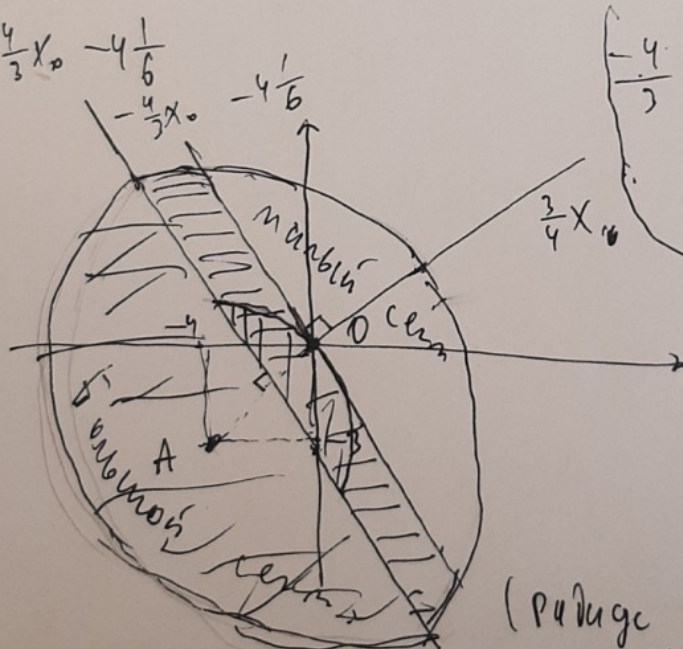 4/3 x₀ - 4 1/6
- 4/3 x₀
- 4 1/6
- 4/3
3/4 x₀
малый сегм
O
-4
A
-3
большой
сегм
(радиус